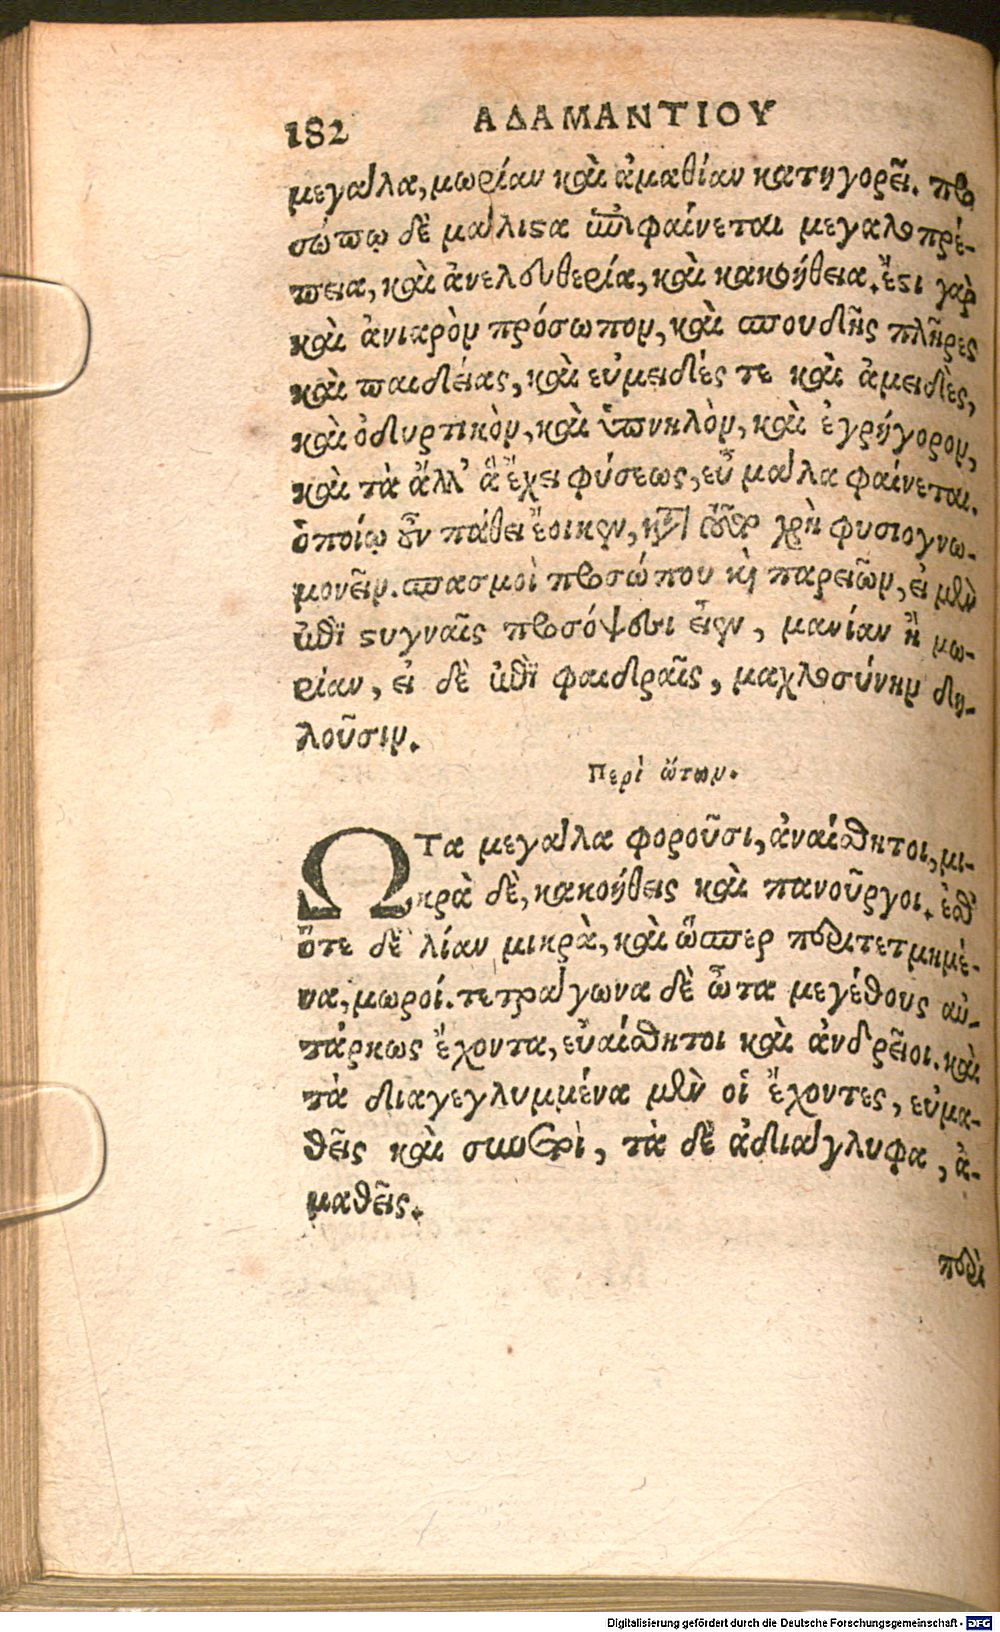 182 ΑΔΑΜΑΝΤΙΟΥ
μεγάλα, μωρίαν καὶ ἀμαθίαν κατηγορεῖ. προ
σώπῳ δὲ μάλιστα ἐπιφαίνεται μεγαλοπρέ-
πεια, καὶ ἀνελευθερία, καὶ κακοήθεια. ἔστι γὰρ
καὶ ἀνιαρὸν πρόσωπον, καὶ σπουδῆς πλῆρες
καὶ παιδείας, καὶ εὐμειδές τε καὶ ἀμειδὲς,
καὶ ὀδυρτικὸν, καὶ ὑπνηλὸν, καὶ ἐγρήγορον,
καὶ τὰ ἄλλ' ἃ ἔχει φύσεως, εὖ μάλα φαίνεται.
ὁποίῳ οὖν πάθει ἔοικεν, χρὴ φυσιογνω-
μονεῖν. σπασμοὶ προσώπου καὶ παρειῶν, εἰ μὲν
ἐπὶ στυγναῖς προσόψεσι εἶεν, μανίαν ἢ μω-
ρίαν, εἰ δὲ ἐπὶ φαιδραῖς, μαχλοσύνην δη-
λοῦσιν.
Περὶ ὤτων.
ΩΤα μεγάλα φοροῦσι, ἀναίσθητοι, μι-
κρὰ δὲ, κακοήθεις καὶ πανοῦργοι. ἐσθ'
ὅτε δὲ λίαν μικρὰ, καὶ ὥσπερ περιτετμημέ-
να, μωροί. τετράγωνα δὲ ὦτα μεγέθους αὐ-
τάρκως ἔχοντα, εὐαίσθητοι καὶ ἀνδρεῖοι. καὶ
τὰ διαγεγλυμμένα μὲν οἱ ἔχοντες, εὐμα-
θεῖς καὶ συνετοὶ, τὰ δὲ ἀδιάγλυφα, ἀ-
μαθεῖς.
περὶ
Digitalisierung gefördert durch die Deutsche Forschungsgemeinschaft - DFG